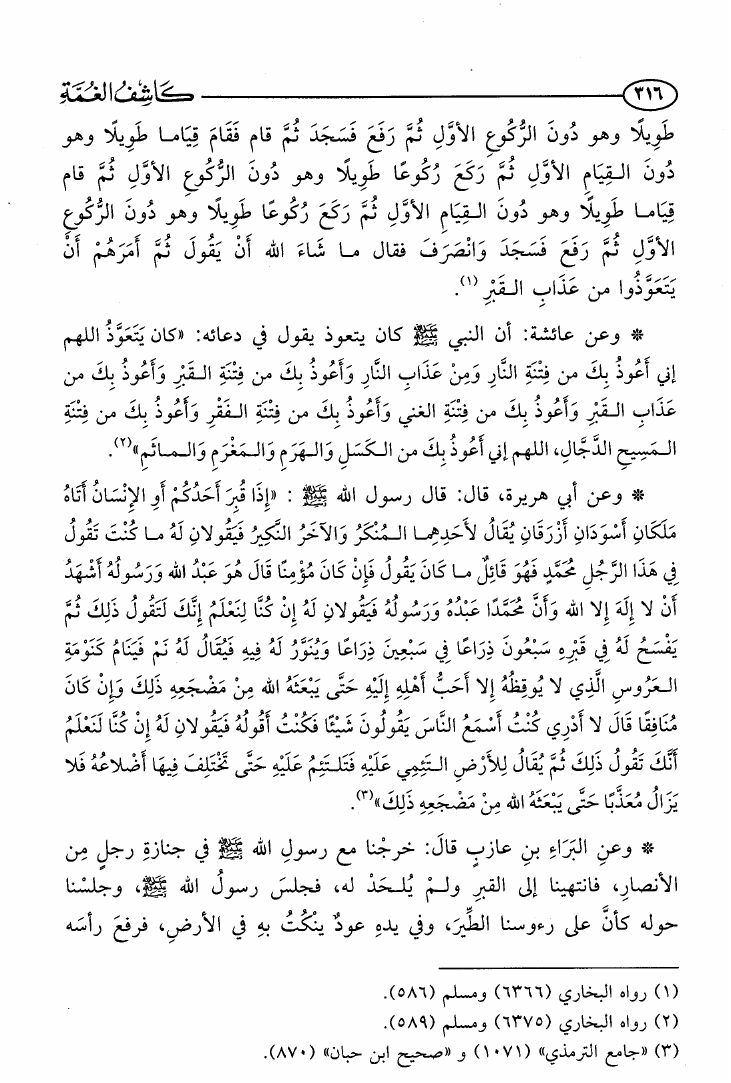 ٣١٦ كَاشِفُ الغُمَّةِ
طَوِيلًا وهو دُونَ الرُّكُوعِ الأوَّلِ ثُمَّ رَفَعَ فَسَجَدَ ثُمَّ قام فَقَامَ قِيَامـا طَوِيلًا وهو
دُونَ الـقِيَامِ الأوَّلِ ثُمَّ رَكَعَ رُكُوعًا طَوِيلًا وهو دُونَ الرُّكُوعِ الأوَّلِ ثُمَّ قام
قِيَامـا طَوِيلًا وهو دُونَ الـقِيَامِ الأوَّلِ ثُمَّ رَكَعَ رُكُوعًا طَوِيلًا وهو دُونَ الرُّكُوعِ
الأوَّلِ ثُمَّ رَفَعَ فَسَجَدَ وَانْصَرَفَ فقال مـا شَاءَ الله أَنْ يَقُولَ ثُمَّ أَمَرَهُمْ أَنْ
يَتَعَوَّذُوا من عَذَابِ الـقَبْرِ (١).
* وعن عائشة: أن النبي ﷺ كان يتعوذ يقول في دعائه: «كان يَتَعَوَّذُ اللهم
إني أَعُوذُ بِكَ من فِتْنَةِ النَّارِ وَمِنْ عَذَابِ النَّارِ وَأَعُوذُ بِكَ من فِتْنَةِ الـقَبْرِ وَأَعُوذُ بِكَ من
عَذَابِ الـقَبْرِ وَأَعُوذُ بِكَ من فِتْنَةِ الغني وَأَعُوذُ بِكَ من فِتْنَةِ الـفَقْرِ وَأَعُوذُ بِكَ من فِتْنَةِ
الـمَسِيحِ الدَّجَّالِ، اللهم إني أَعُوذُ بِكَ من الـكَسَلِ وَالـهَرَمِ وَالـمَغْرَمِ وَالـمـاثَمِ»(٢).
* وعن أبي هريرة، قال: قال رسول الله ﷺ : «إِذَا قُبِرَ أَحَدُكُمْ أَوِ الإِنْسَانُ أَتَاهُ
مَلَكَانِ أَسْوَدَانِ أَزْرَقَانِ يُقَالُ لأَحَدِهِمـا الـمُنْكَرُ وَالآخَرُ النَّكِيرُ فَيَقُولانِ لَهُ مـا كُنْتَ تَقُولُ
فِي هَذَا الرَّجُلِ مُحَمَّدٍ فَهُوَ قَائِلٌ مـا كَانَ يَقُولُ فَإِنْ كَانَ مُؤْمِنًا قَالَ هُوَ عَبْدُ الله وَرَسُولُهُ أَشْهَدُ
أَنْ لا إِلَهَ إِلا الله وَأَنَّ مُحَمَّدًا عَبْدُهُ وَرَسُولُهُ فَيَقُولانِ لَهُ إِنْ كُنَّا لِنَعْلَمُ إِنَّكَ لَتَقُولُ ذَلِكَ ثُمَّ
يَفْسَحُ لَهُ فِي قَبْرِهِ سَبْعُونَ ذِرَاعًا فِي سَبْعِينَ ذِرَاعًا وَيُنَوَّرُ لَهُ فِيهِ فَيُقَالُ لَهُ نَمْ فَيَنَامُ كَنَوْمَةِ
الـعَرُوسِ الَّذِي لا يُوقِظُهُ إِلا أَحَبُّ أَهْلِهِ إِلَيْهِ حَتَّى يَبْعَثَهُ الله مِنْ مَضْجَعِهِ ذَلِكَ وَإِنْ كَانَ
مُنَافِقًا قَالَ لا أَدْرِي كُنْتُ أَسْمَعُ النَّاسَ يَقُولُونَ شَيْئًا فَكُنْتُ أَقُولُهُ فَيَقُولانِ لَهُ إِنْ كُنَّا لَنَعْلَمُ
أَنَّكَ تَقُولُ ذَلِكَ ثُمَّ يُقَالُ لِلأَرْضِ الـتَئِمِي عَلَيْهِ فَتَلـتَئِمُ عَلَيْهِ حَتَّى تَخْتَلِفَ فِيهَا أَضْلاعُهُ فَلا
يَزَالُ مُعَذَّبًا حَتَّى يَبْعَثَهُ الله مِنْ مَضْجَعِهِ ذَلِكَ»(٣).
* وعنِ البَرَاءِ بنِ عازبٍ قالَ: خرجْنا مع رسولِ الله ﷺ في جنازةِ رجلٍ مِن
الأنصارِ، فانتهينا إلى القبرِ ولـمْ يُلـحَدْ له، فجلسَ رسولُ الله ﷺ، وجلسْنا
حوله كأنَّ على رءوسنا الطِّيرَ، وفي يدهِ عودٌ ينْكُتُ بهِ في الأرضِ، فرفعَ رأسَه
(١) رواه البخاري (٦٣٦٦) ومسلم (٥٨٦).
(٢) رواه البخاري (٦٣٧٥) ومسلم (٥٨٩).
(٣) «جامع الترمذي» (١٠٧١) و «صحيح ابن حبان» (٨٧٠).